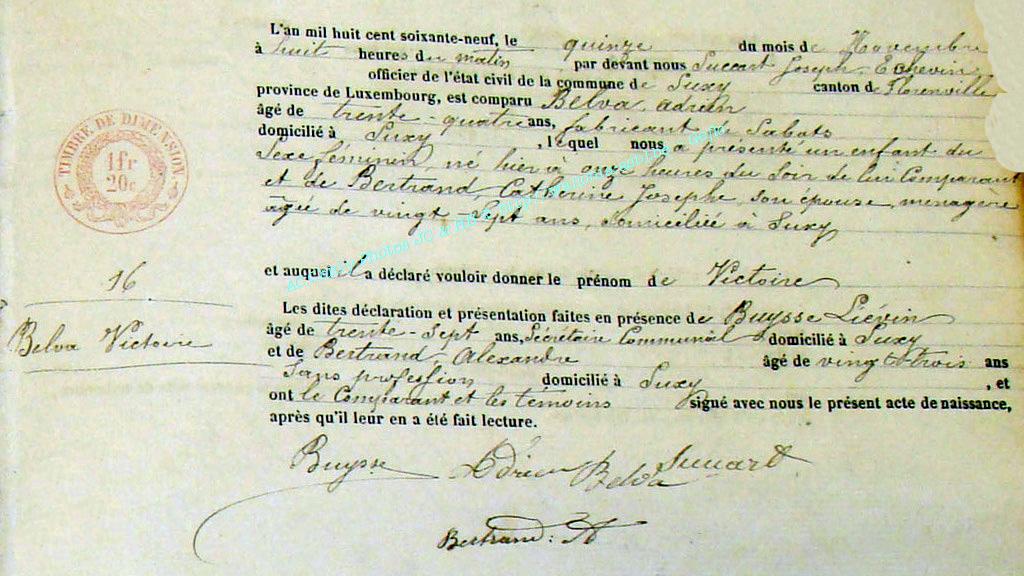 L'an mil huit cent soixante-neuf, le quinze du mois de Novembre
à huit heures du matin par devant nous Succart Joseph, Echevin
officier de l'état civil de la commune de Suxy canton de Florenville
province de Luxembourg, est comparu Belva, Adrien
âgé de trente-quatre ans, fabricant de Sabots
domicilié à Suxy, lequel nous a présenté un enfant du
Sexe féminin, né hier à onze heures du Soir de lui Comparant
et de Bertrand, Catherine Josephe, son épouse, menagère
âgée de vingt-Sept ans, domiciliée à Suxy
TIMBRE DE DIMENSION
1 fr
20 c
16
et auquel il a déclaré vouloir donner le prénom de Victoire
Les dites déclaration et présentation faites en présence de Buysse Liévin
Belva Victoire
âgé de trente-Sept ans, Sécrétaire Communal domicilié à Suxy
et de Bertrand, Alexandre âgé de vingt-trois ans
Sans profession domicilié à Suxy, et
ont le Comparant et les témoins signé avec nous le présent acte de naissance,
après qu'il leur en a été fait lecture.
Buysse Adrien Belva Succart
Bertrand: A